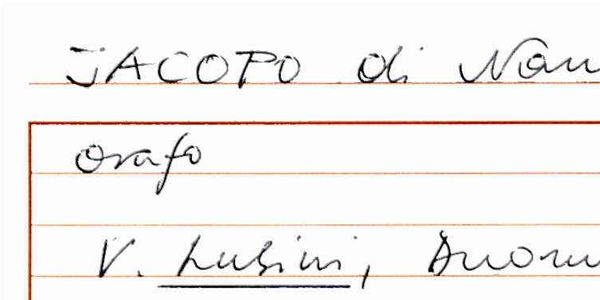 JACOPO di Nan
orafo
V. Lusini,